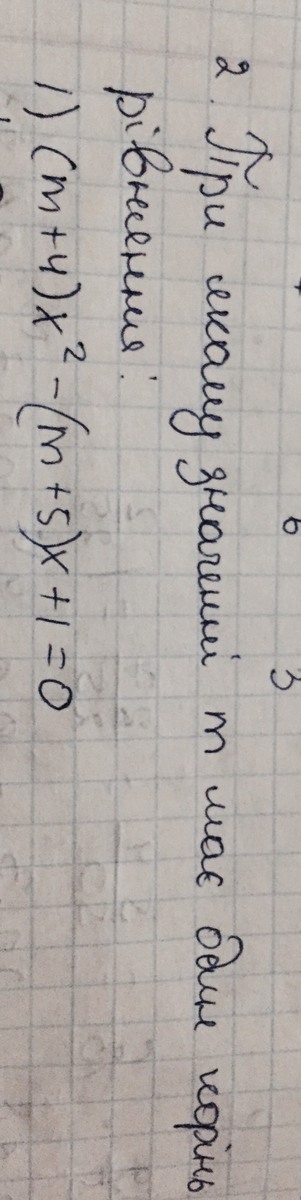 2. При якому значенні m має один корінь
рівняння:
1) (m+4)x² - (m+5)x + 1 = 0